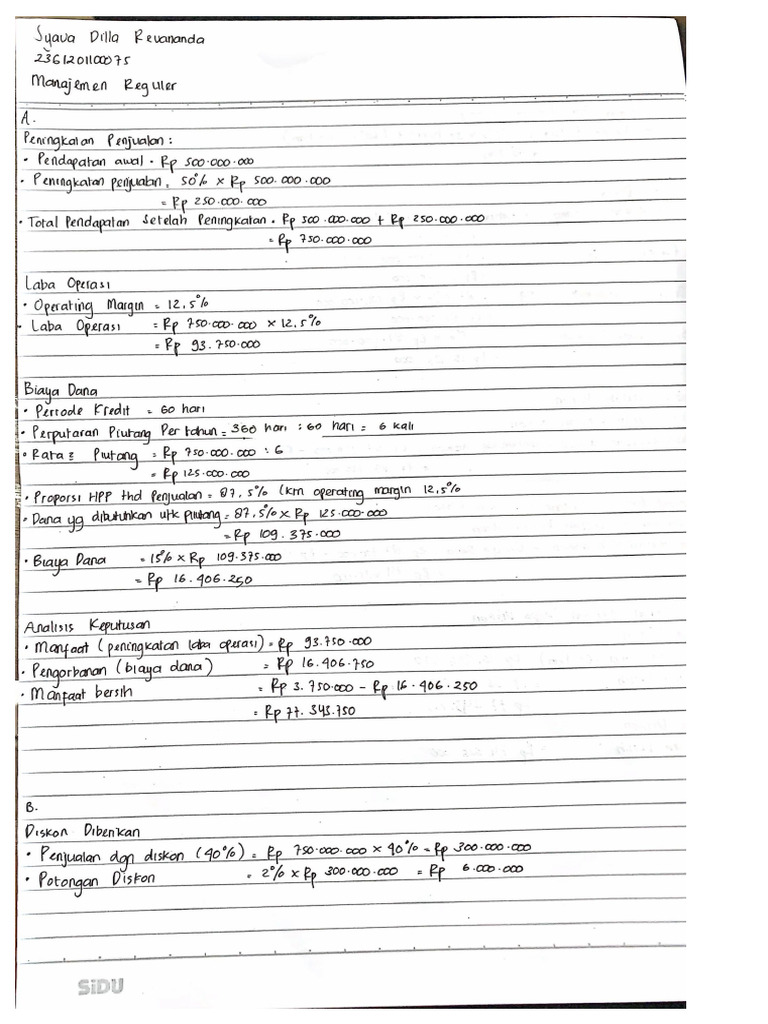 Syava Dilla Revananda
2361201100075
Manajemen Reguler
A.
Peningkatan Penjualan :
• Pendapatan awal • Rp 500.000.000
• Peningkatan penjualan, 50% × Rp 500.000.000
= Rp 250.000.000
• Total Pendapatan Setelah Peningkatan • Rp 500.000.000 + Rp 250.000.000
= Rp 750.000.000
Laba Operasi
• Operating Margin = 12,5%
• Laba Operasi = Rp 750.000.000 × 12,5%
= Rp 93.750.000
Biaya Dana
• Periode Kredit = 60 hari
• Perputaran Piutang Per tahun = 360 hari : 60 hari = 6 kali
• Rata² Piutang = Rp 750.000.000 : 6
= Rp 125.000.000
• Proporsi HPP thd Penjualan = 87,5% (krn operating margin 12,5%
• Dana yg dibutuhkan utk piutang = 87,5% × Rp 125.000.000
= Rp 109.375.000
• Biaya Dana = 15% × Rp 109.375.000
= Rp 16.406.250
Analisis Keputusan
• Manfaat (peningkatan laba operasi) = Rp 93.750.000
• Pengorbanan (biaya dana) = Rp 16.406.750
• Manfaat bersih = Rp 3.750.000 – Rp 16.406.250
= Rp 77.343.750
B.
Diskon Diberikan
• Penjualan dgn diskon (40%) = Rp 750.000.000 × 40% = Rp 300.000.000
• Potongan Diskon = 2% × Rp 300.000.000 = Rp 6.000.000
SiDU